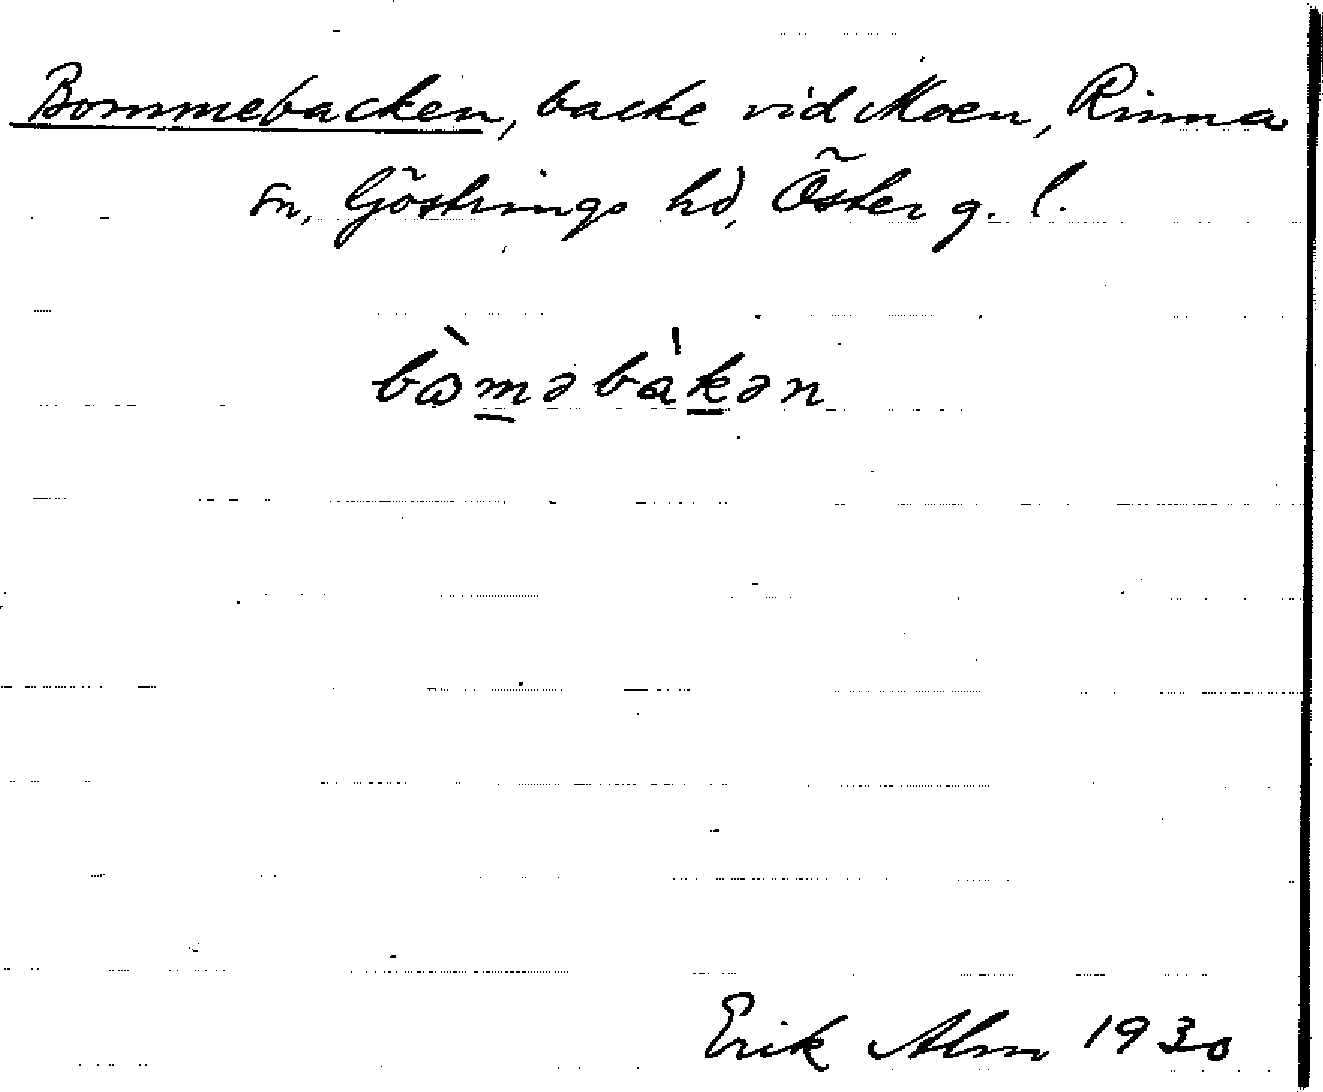 Bommebacken, backe vid Moen, Rinna
sn, Göstrings hd, Österg. l.
bɷ̀məbàkən
Erik Alm 1930